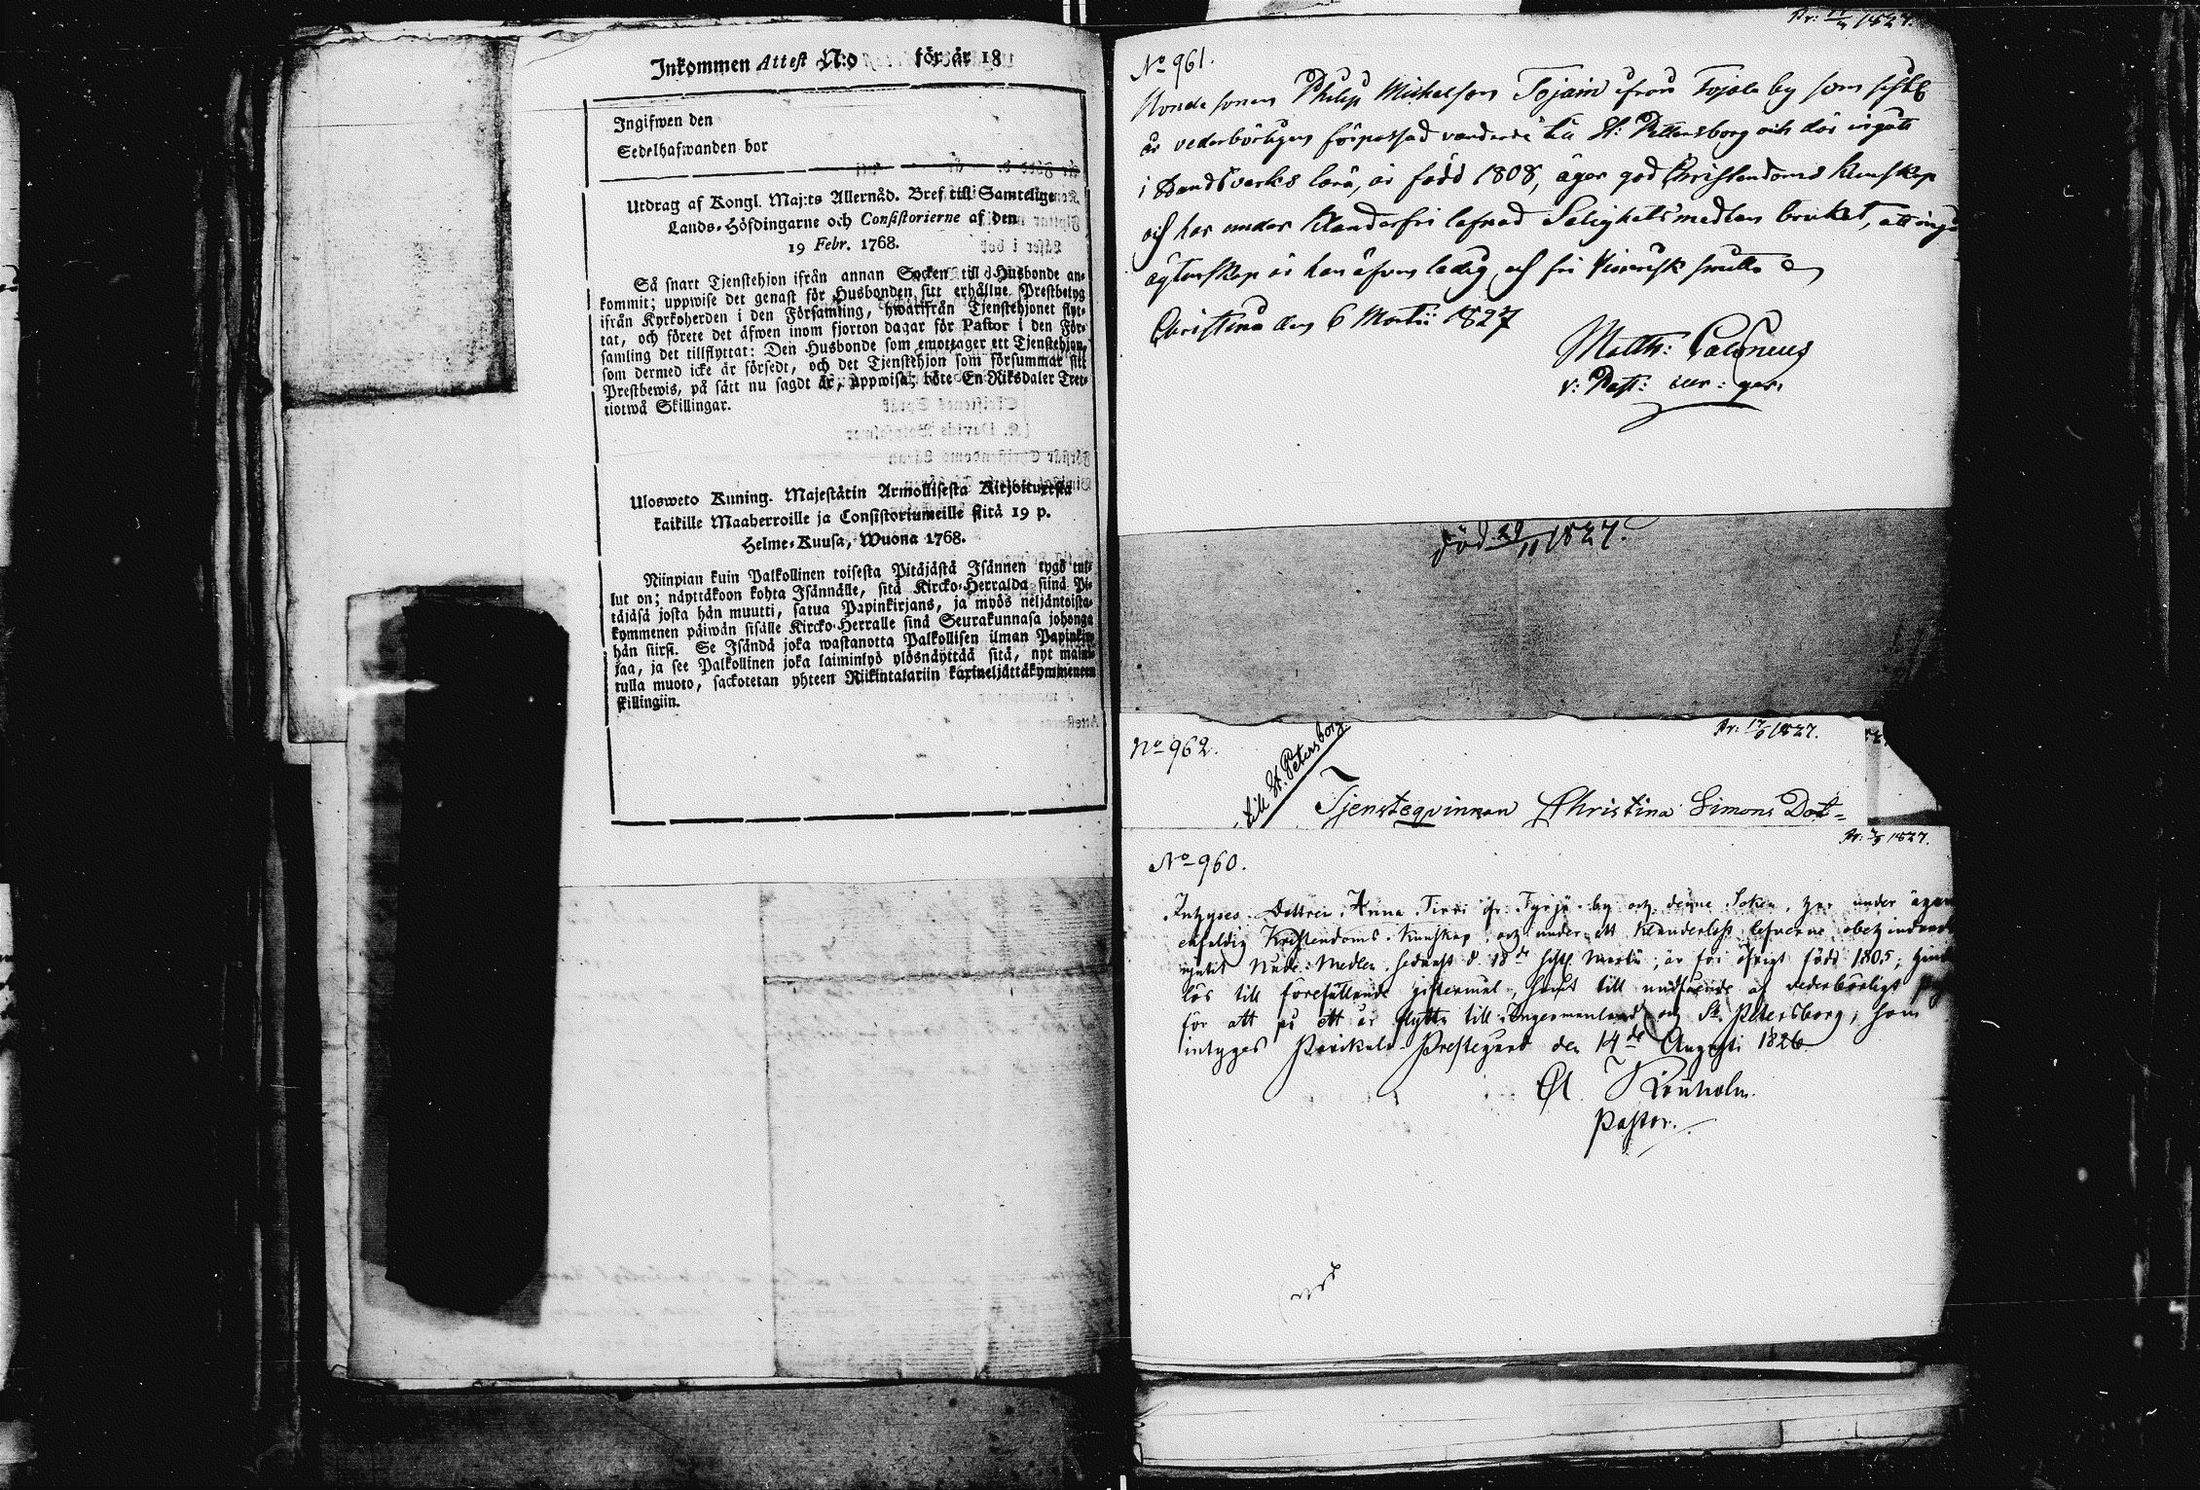 Inkommen Attest N:o för år 18
Ingifwen den
Sedelhafwanden bor
Utdrag af Kongl. Maj:ts Allernåd. Bref till Samtelige
Lands-Höfdingarne och Consistorierne af den
19 Febr. 1768.
Så snart Tjenstehjon ifrån annan Socken till Husbonde an-
kommit; uppwise det genast för Husbonden sitt erhållne Prestbetyg
ifrån Kyrkoherden i den Församling, hwarifrån Tjenstehjonet flyt-
tat, och förete det äfwen inom fjorton dagar för Pastor i den För-
samling det tillflyttat: Den Husbonde som emottager ett Tjenstehjon,
som dermed icke är försedt, och det Tjenstehjon som försummar sitt
Prestbewis, på sätt nu sagdt är, uppwisa; böte En Riksdaler Tret-
tiotwå Skillingar.
Ulosweto Kuning. Majestätin Armollisesta Kirjoituxesta
kaikille Maaherroille ja Consistoriumeille siitä 19 p.
Helme-Kuusa, Wuona 1768.
Niinpian kuin Palkollinen toisesta Pitäjästä Isännen tygö tul-
lut on; näyttäköön kohta Isännälle, sitä Kircko-Herralda siinä Pi-
täjäsä josta hän muutti, satua Papinkirjans, ja myös neljäntoista-
kymmenen päiwän sisälle Kircko-Herralle sinä Seurakunnasa johonga
hän siirsi. Se Isändä joka wastanotta Palkollisen ilman Papinkir-
jaa, ja see Palkollinen joka laiminlyö ylösnäyttää sitä, nyt maini-
tulla muoto, sackotetan yhteen Riikintalariin kaxineljättäkymmeneen
skillingiin.
Pr: 1827.
No 961.
Bonde sonen Philip Michelson Tojain ifrån Tojola by som sistl
år vederbörligen förpassad vandrade til St: Pettersborg och där ingått
i Handtverks lära, är född 1808, äger god Christendoms kunskap
och har under klanderfri lefnad Salighets medlen brukat, att ingå
ägtenskap är han äfven ledig och fri
Christina den 6 Martii 1827
Matth: Calonius
v: Past:
död 29/11 1827.
No 962.
till St. Petersborg
Pr: 1827.
Tjensteqvinnan Christina Simons Dot-
Pr: 1827.
No 960.
Intygas Dottren Anna Tirri fr. Tyrjä by och denne Soken, har under ägan
enfaldig Kristendoms kunskap och under ett klanderlöst lefverne
Nåde Medlen sednast d. 18de sistl. Martii; är för öfrigt född 1805;
lös till förefallande giftermål, samt till undfående af vederbörligt
för att på ett år flytta till Ingermanland och St. Petersborg; som
intygas Parikala Prestegård den 14de Augusti 1826
Pastor.